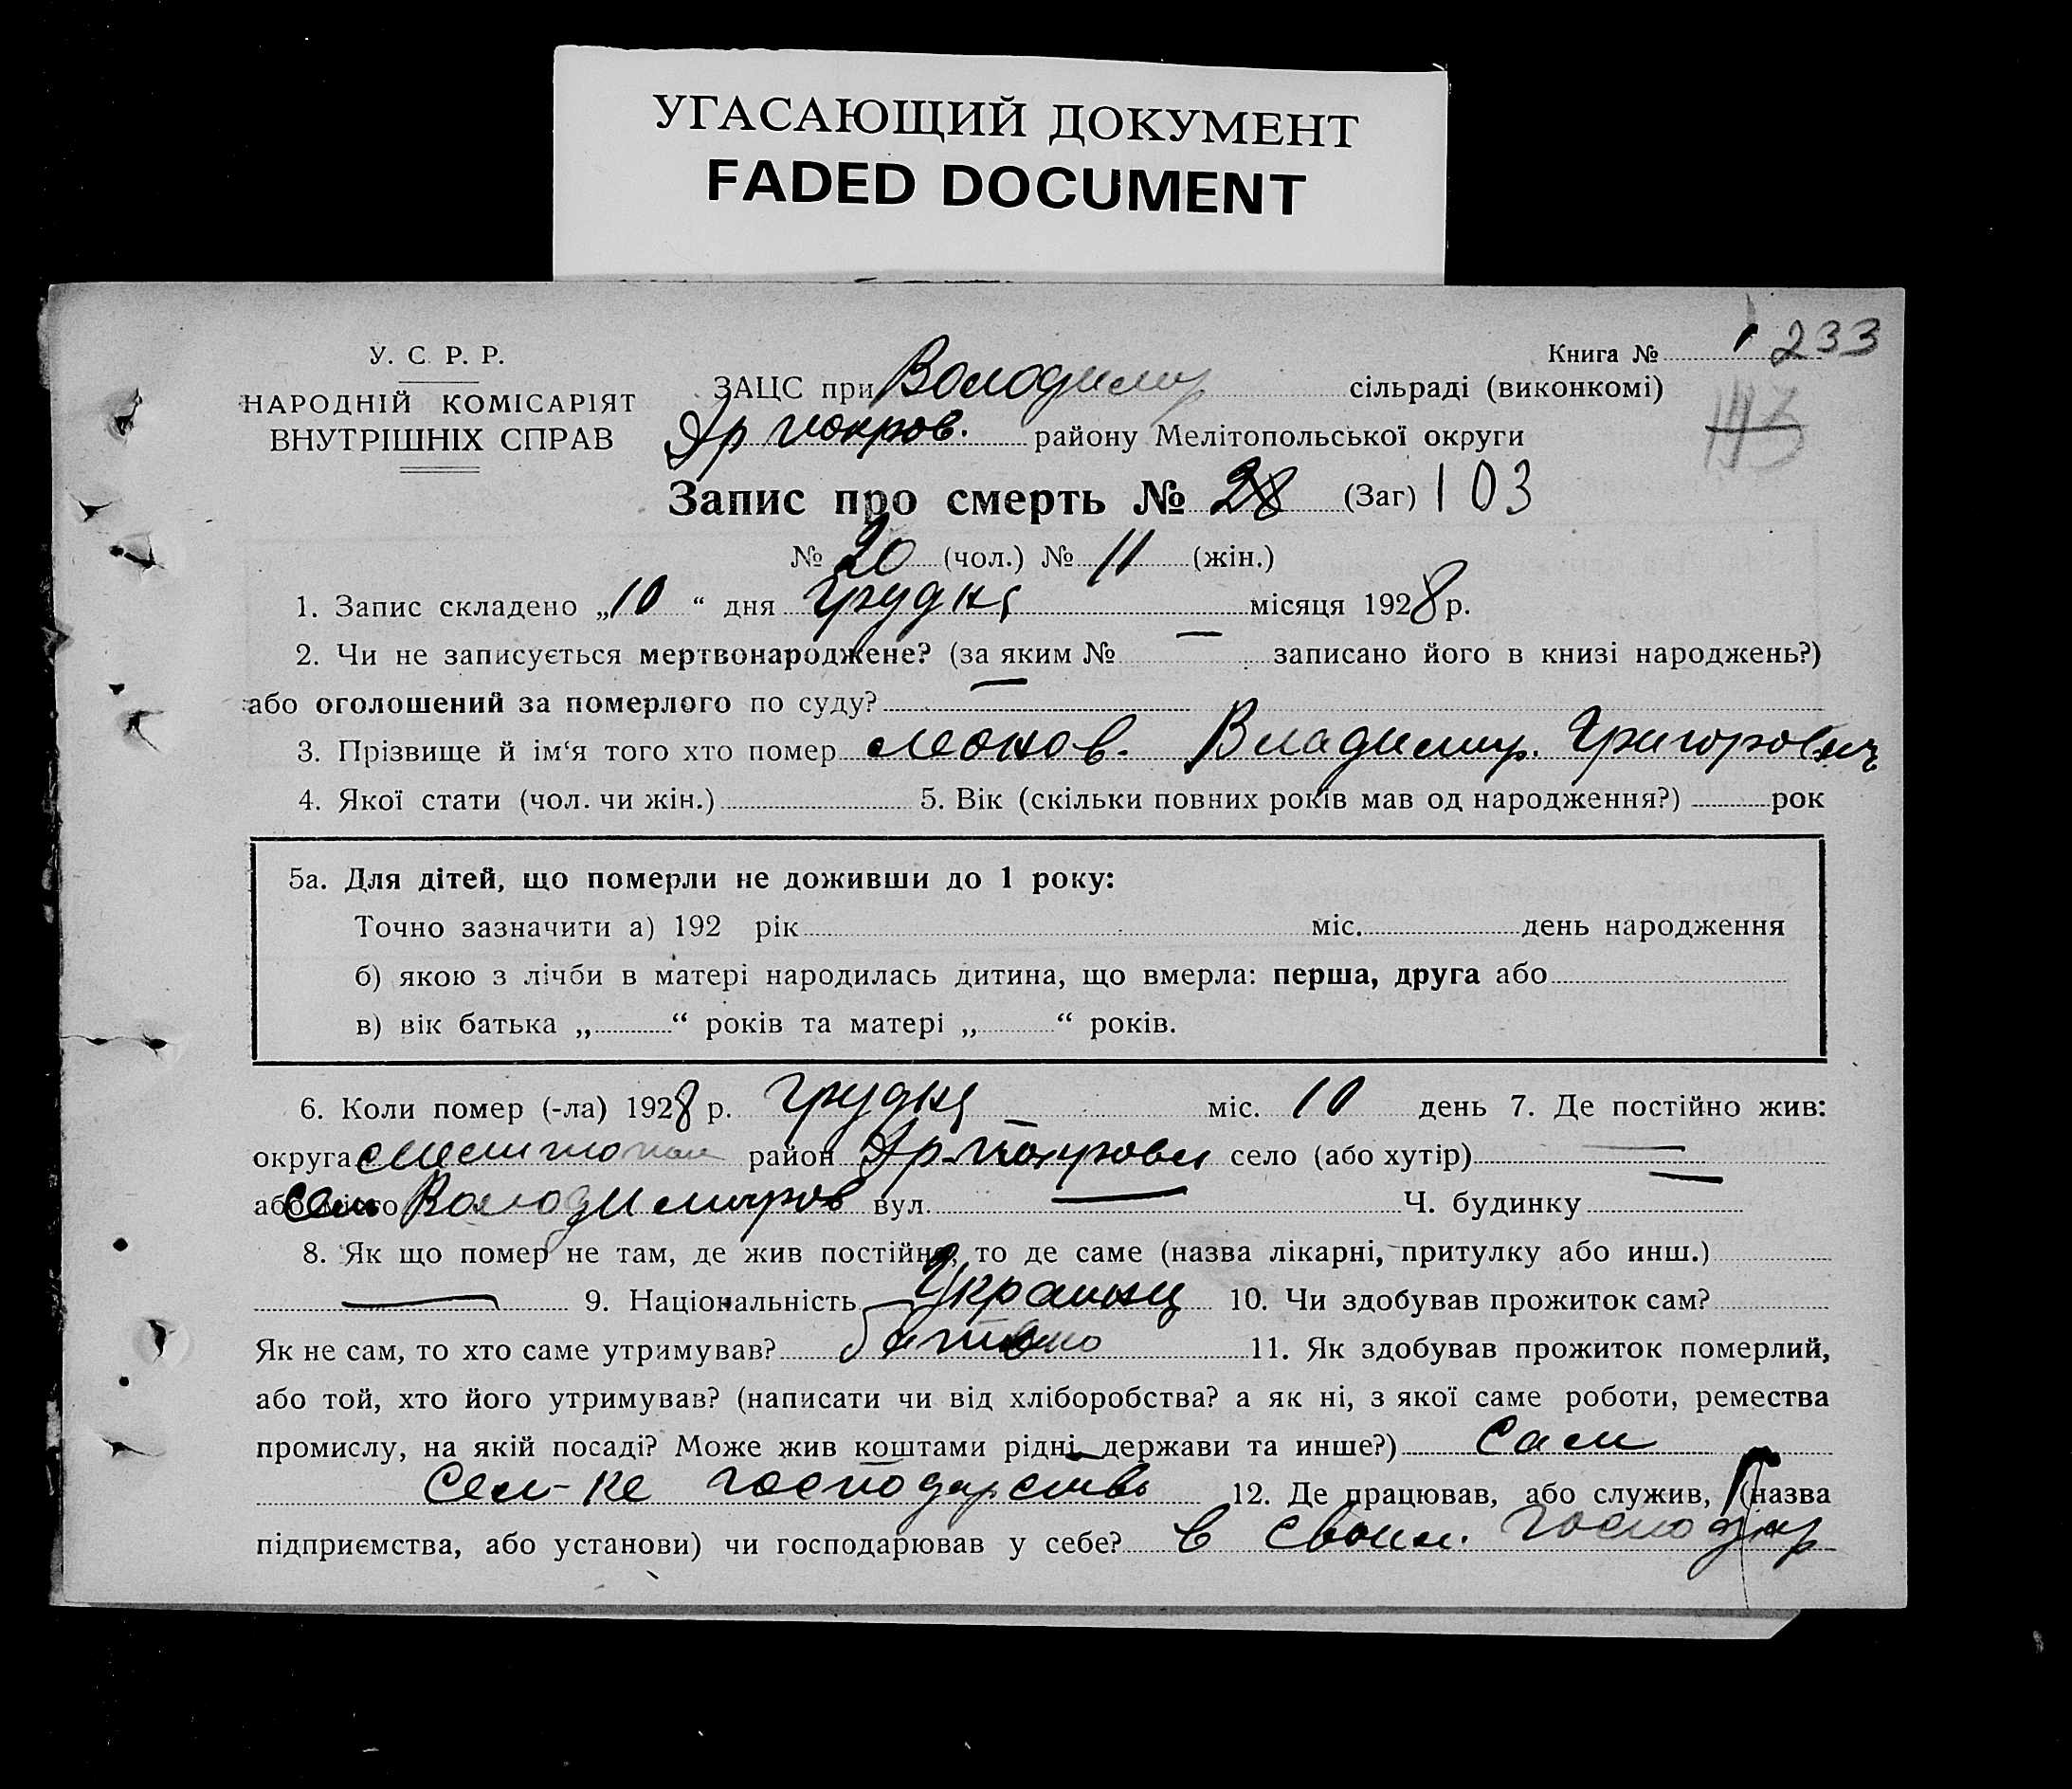 УГАСАЮЩИЙ ДОКУМЕНТ
FADED DOCUMENT
У. С. Р. Р.
НАРОДНІЙ КОМІСАРІЯТ
ВНУТРІШНІХ СПРАВ
Книга № 1 233
ЗАЦС при Володимир сільраді (виконкомі)
143
покров. району Мелітопольської округи
Запис про смерть № 28 (Заг) 103
№ 20 (чол.) № 11 (жін.)
1. Запис складено „10“ дня грудня місяця 1928 р.
2. Чи не записується мертвонароджене? (за яким № — записано його в книзі народжень?)
або оголошений за померлого по суду? —
3. Прізвище й ім‘я того хто помер Владимир. Григорович
4. Якої стати (чол. чи жін.) 5. Вік (скільки повних років мав од народження?) рок
5а. Для дітей, що померли не доживши до 1 року:
Точно зазначити а) 192 рік міс. день народження
б) якою з лічби в матері народилась дитина, що вмерла: перша, друга або
в) вік батька „ “ років та матері „ “ років.
6. Коли помер (-ла) 1928 р. грудня міс. 10 день 7. Де постійно жив:
округа район село (або хутір) —
або місто Село Володимиров вул. — Ч. будинку —
8. Як що помер не там, де жив постійно, то де саме (назва лікарні, притулку або инш.)
— 9. Національність Украинец 10. Чи здобував прожиток сам?
Як не сам, то хто саме утримував? батько 11. Як здобував прожиток померлий,
або той, хто його утримував? (написати чи від хліборобства? а як ні, з якої саме роботи, ремества
промислу, на якій посаді? Може жив коштами рідні, держави та инше?) Сам
Сел-ке господарство 12. Де працював, або служив, (назва
підприємства, або установи) чи господарював у себе? в своим. господар